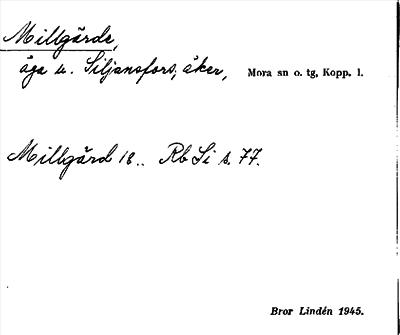 Millgärde,
äga u. Siljansfors; åker, Mora sn o. tg, Kopp. l.
Millgärd 18.. Rb Si s. 77.
Bror Lindén 1945.